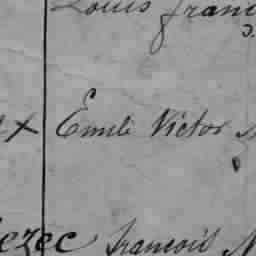 Louis franc
x Emile Victor
ezec francois